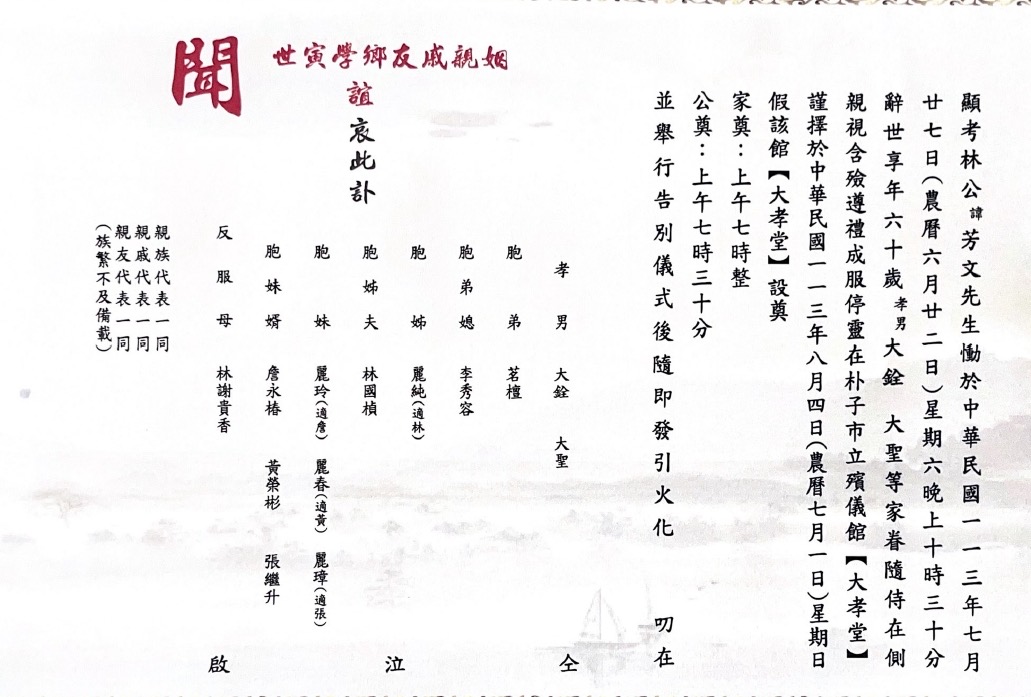 顯考林公諱芳文先生慟於中華民國一一三年七月
廿七日(農曆六月廿二日)星期六晚上十時三十分
辭世享年六十歲孝男大銓 大聖等家眷隨侍在側
親視含殮遵禮成服停靈在朴子市立殯儀館【大孝堂】
謹擇於中華民國一一三年八月四日(農曆七月一日)星期日
假該館【大孝堂】設奠
家奠：上午七時整
公奠：上午七時三十分
並舉行告別儀式後隨即發引火化 叨在
姻親戚友鄉學寅世
誼
哀此訃
聞
孝男 大銓 大聖
胞弟 茗檀
胞弟媳 李秀容
胞姊 麗純(適林)
胞姊夫 林國楨
胞妹 麗玲(適詹) 麗春(適黃) 麗璋(適張)
胞妹婿 詹永椿 黃榮彬 張繼升
反服母 林謝貴香
仝 泣 啟
親族代表一同
親戚代表一同
親友代表一同
(族繁不及備載)